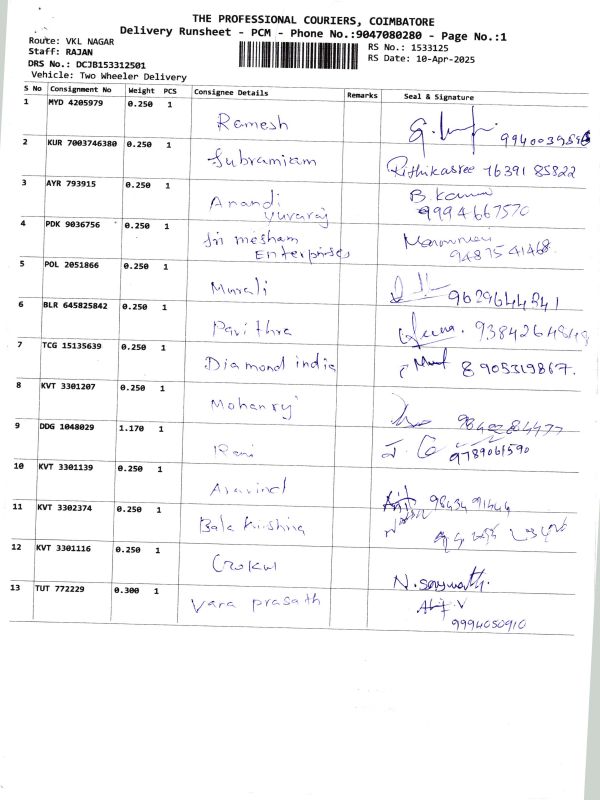 THE PROFESSIONAL COURIERS, COIMBATORE
Delivery Runsheet - PCM - Phone No.:9047080280 - Page No.:1
Route: VKL NAGAR
RS No.: 1533125
Staff: RAJAN
RS Date: 10-Apr-2025
DRS No.: DCJB153312501
Vehicle: Two Wheeler Delivery
S No Consignment No Weight PCS Consignee Details Remarks Seal & Signature
1 MYD 4205979 0.250 1 Ramesh
2 KUR 7003746380 0.250 1 Subramiam Rithikasree 16391 85822
3 AYR 793915 0.250 1 Anandi
yuvaraj
B. 9994667570
4 PDK 9036756 0.250 1 Sri mesham
Enterprises
94875 41468
5 POL 2051866 0.250 1 Murali 9629644841
6 BLR 645825842 0.250 1 Pavithra
7 TCG 15135639 0.250 1 Diamond india 8905319867.
8 KVT 3301207 0.250 1 Mohanrj
9 DDG 1048029 1.170 1 Rani 9789061590
10 KVT 3301139 0.250 1 Aravind
11 KVT 3302374 0.250 1 Bala Krishna
12 KVT 3301116 0.250 1 Gokul
13 TUT 772229 0.300 1 Vara prasath
9994050910